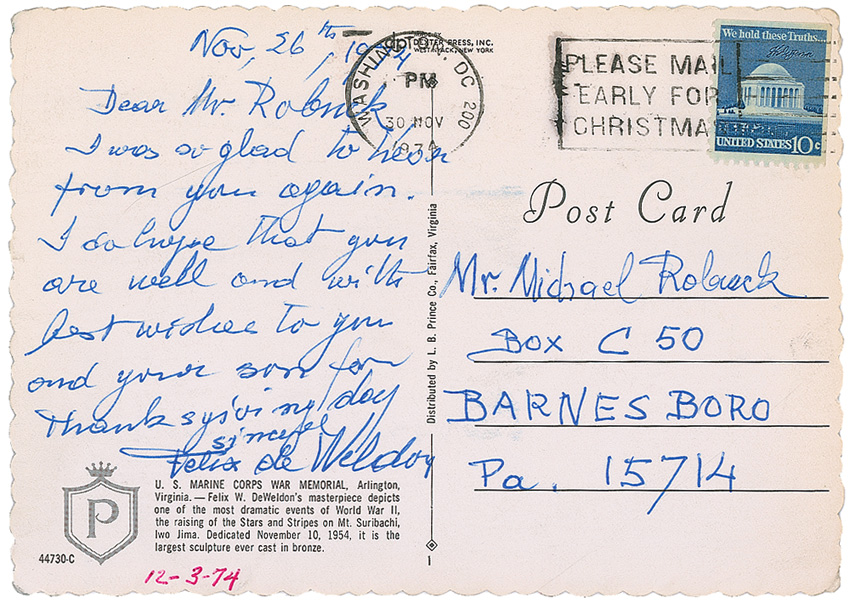 Nov, 26ths, 1974
Dear Mr. Robuck,
I was so glad to hear
from you again.
I do hope that you
are well and with
best wishes to you
and your son for
Thanksgiving day
Felix de Weldon
U. S. MARINE CORPS WAR MEMORIAL, Arlington,
Virginia. — Felix W. DeWeldon's masterpiece depicts
one of the most dramatic events of World War II,
the raising of the Stars and Stripes on Mt. Suribachi,
Iwo Jima. Dedicated November 10, 1954, it is the
largest sculpture ever cast in bronze.
P
44730-C
12-3-74
DEXTER PRESS, INC.
WEST NYACK, NEW YORK
WASHINGTON, DC 200
PM
30 NOV
1974
Distributed by L. B. Prince Co., Fairfax, Virginia
1
PLEASE MAIL
EARLY FOR
CHRISTMA
We hold these Truths...
UNITED STATES 10c
Post Card
Mr. Michael Robuck
Box C 50
BARNESBORO
Pa. 15714